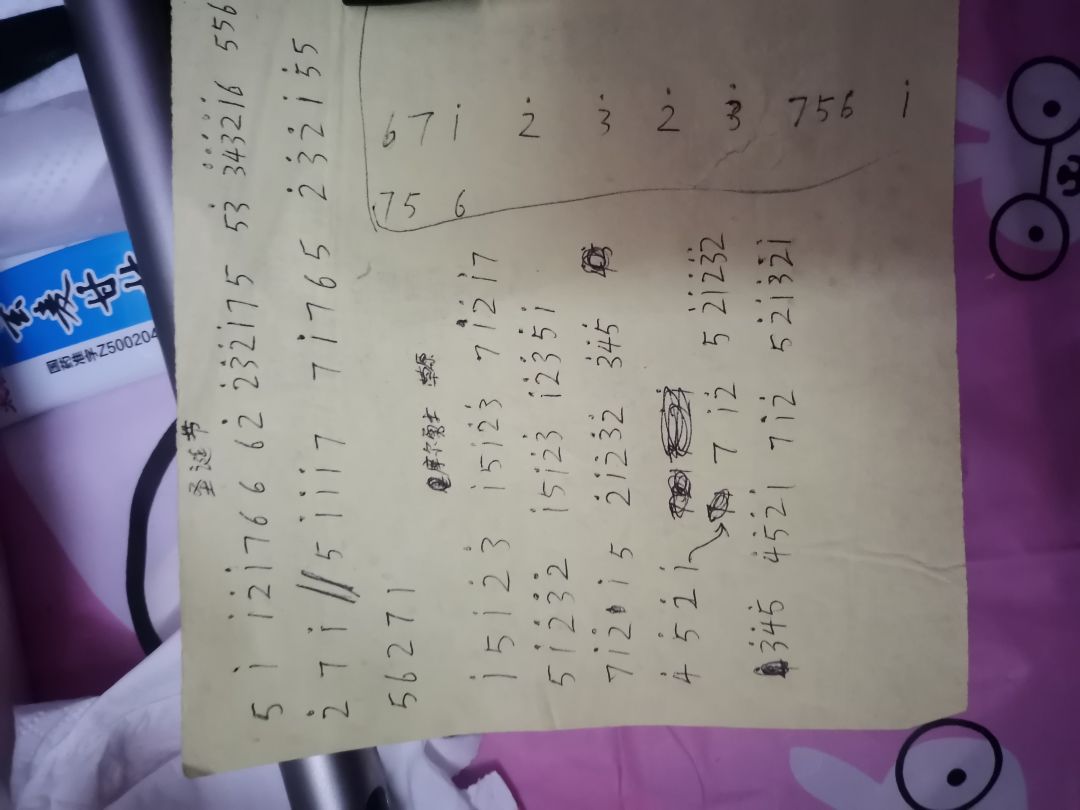 圣诞节
5 i̇ i̇2̇i̇76 6 62̇ 2̇3̇2̇i̇75 53̇ 3̇4̇3̇2̇i̇6 556
2̇ 7 i̇ // 5 i̇ i̇ i̇ 7 7 i̇ 7 6 5 2̇ 3̇ 2̇ i̇ 5 5
5 6 2 7 1
摩尔勇士
i̇ 5 i̇ 2̇ 3̇ i̇5i̇2̇3̇ 7i̇2̇i̇7
5i̇2̇3̇2̇ i̇5i̇2̇3̇ i̇2̇3̇5i̇
7i̇2̇ i̇5 2̇i̇2̇3̇2̇ 3̇4̇5
4̇ 5 2̇ i̇ → 7 i̇2̇ 5 2̇i̇2̇3̇2̇
3̇4̇5 4̇52̇i̇ 7i̇2̇ 52̇i̇3̇2̇i̇
67i̇ 2̇ 3̇ 2̇ 3̇ 756 i̇
75 6
国药准字Z500204